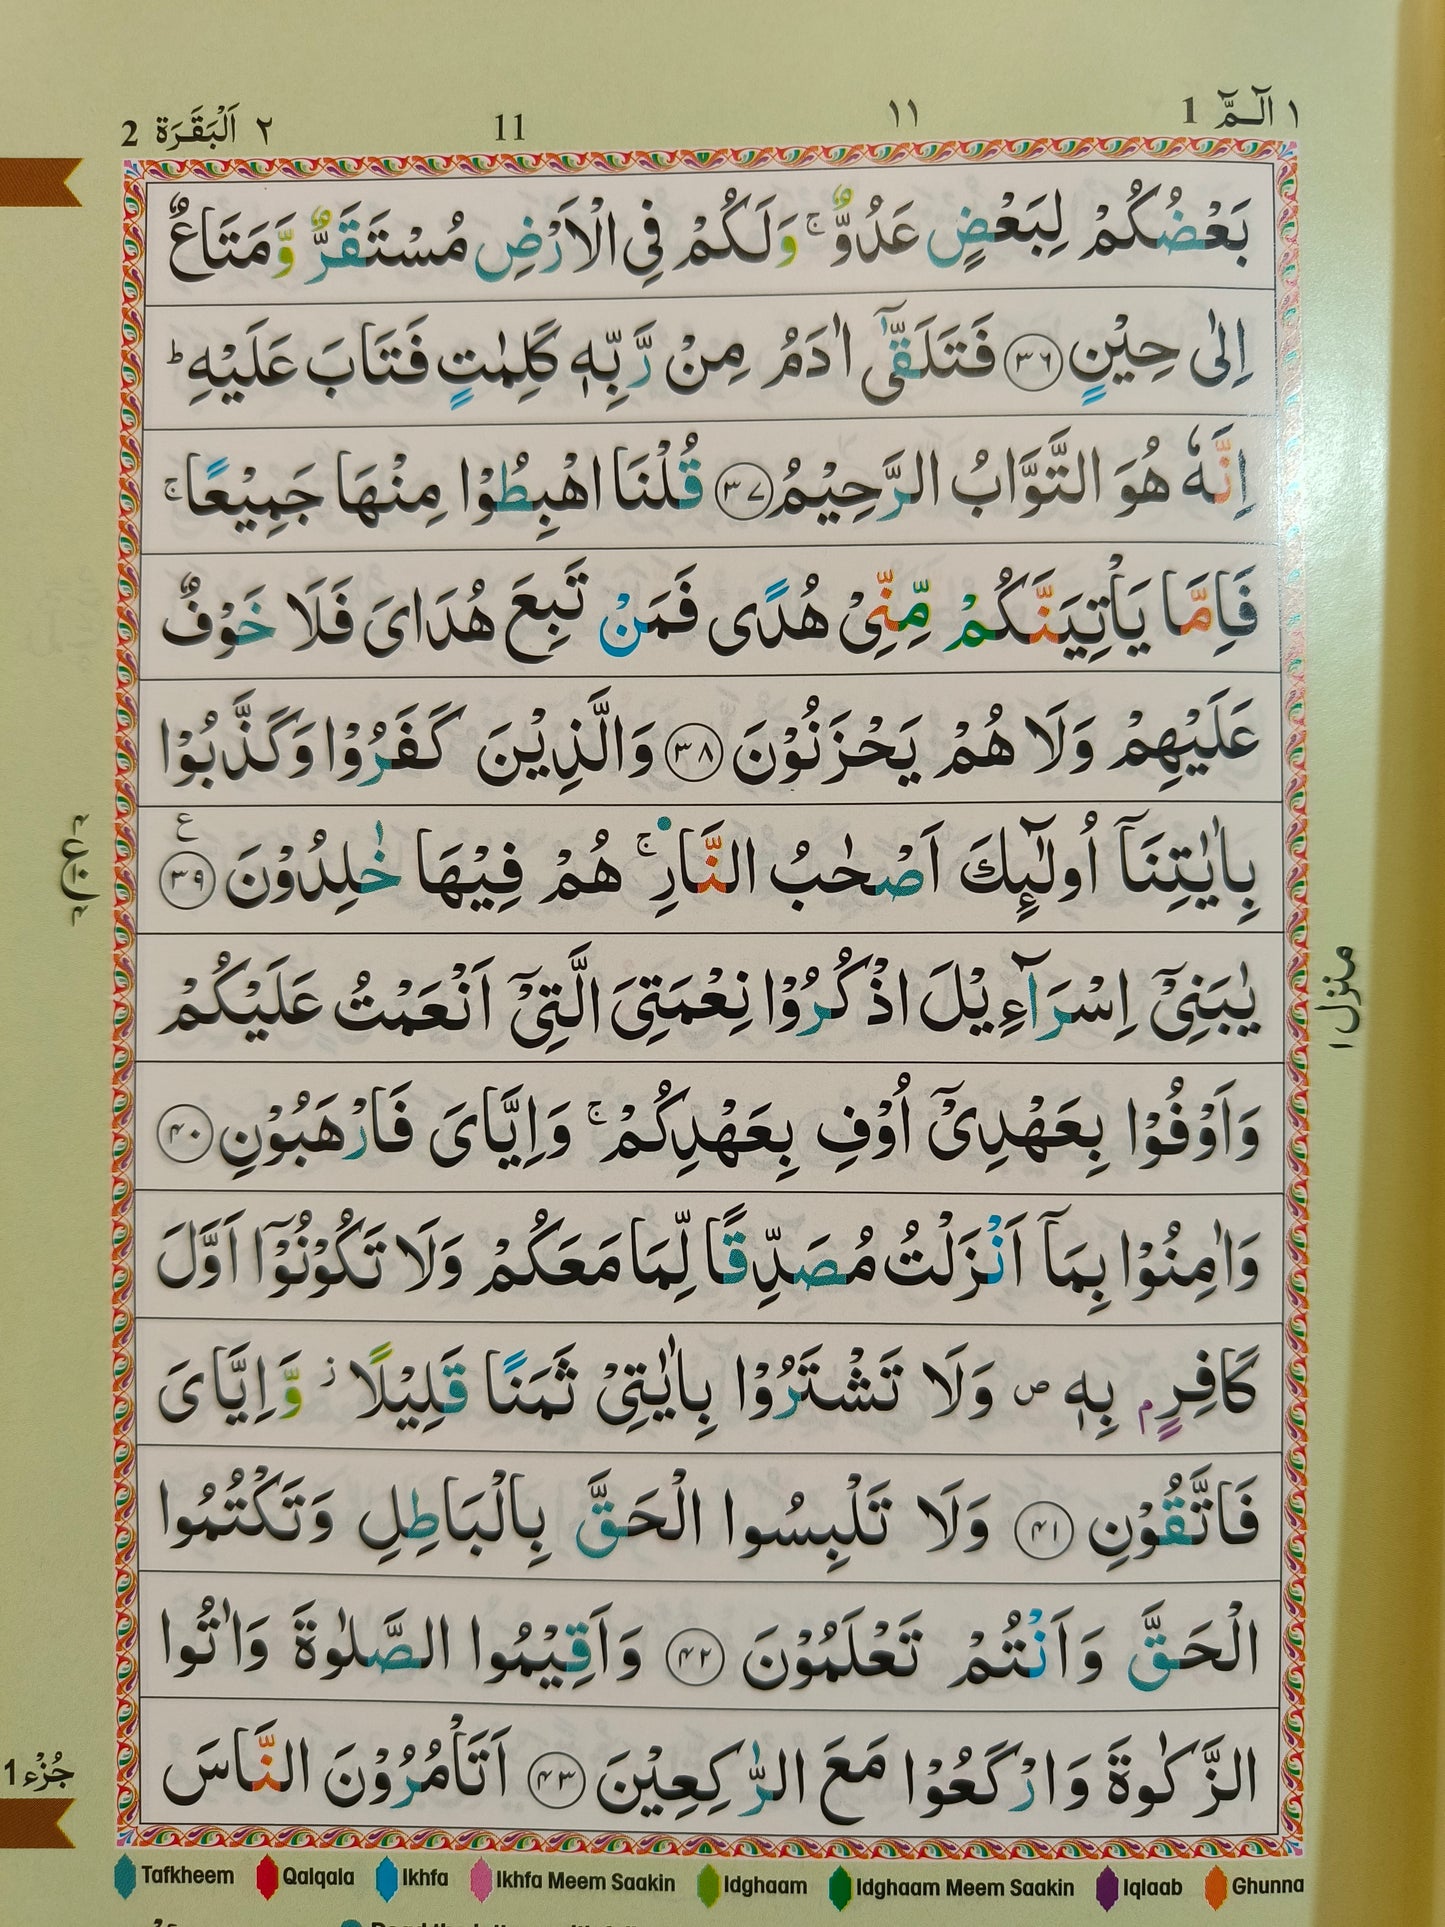 ١ آلٓـمّٓ 1
١١
11
٢ اَلْبَقَرَة 2
بَعْضُكُمْ لِبَعْضٍ عَدُوٌّ ۚ وَلَكُمْ فِى الْاَرْضِ مُسْتَقَرٌّ وَّمَتَاعٌ
اِلٰى حِيْنٍ ﴿۳۶﴾ فَتَلَقّٰٓى اٰدَمُ مِنْ رَّبِّهٖ كَلِمٰتٍ فَتَابَ عَلَيْهِ ؕ
اِنَّهٗ هُوَ التَّوَّابُ الرَّحِيْمُ ﴿۳۷﴾ قُلْنَا اهْبِطُوْا مِنْهَا جَمِيْعًا ۚ
فَاِمَّا يَاْتِيَنَّكُمْ مِّنِّىْ هُدًى فَمَنْ تَبِعَ هُدَاىَ فَلَا خَوْفٌ
عَلَيْهِمْ وَلَا هُمْ يَحْزَنُوْنَ ﴿۳۸﴾ وَالَّذِيْنَ كَفَرُوْا وَكَذَّبُوْا
بِاٰيٰتِنَآ اُولٰٓئِكَ اَصْحٰبُ النَّارِ ۚ هُمْ فِيْهَا خٰلِدُوْنَ ﴿۳۹﴾ ع
يٰبَنِىْٓ اِسْرَآءِيْلَ اذْكُرُوْا نِعْمَتِىَ الَّتِىْٓ اَنْعَمْتُ عَلَيْكُمْ
وَاَوْفُوْا بِعَهْدِىْٓ اُوْفِ بِعَهْدِكُمْ ۚ وَاِيَّاىَ فَارْهَبُوْنِ ﴿۴۰﴾
وَاٰمِنُوْا بِمَآ اَنْزَلْتُ مُصَدِّقًا لِّمَا مَعَكُمْ وَلَا تَكُوْنُوْٓا اَوَّلَ
كَافِرٍۭ بِهٖ ص وَلَا تَشْتَرُوْا بِاٰيٰتِىْ ثَمَنًا قَلِيْلًا ز وَّاِيَّاىَ
فَاتَّقُوْنِ ﴿۴۱﴾ وَلَا تَلْبِسُوا الْحَقَّ بِالْبَاطِلِ وَتَكْتُمُوا
الْحَقَّ وَاَنْتُمْ تَعْلَمُوْنَ ﴿۴۲﴾ وَاَقِيْمُوا الصَّلٰوةَ وَاٰتُوا
الزَّكٰوةَ وَارْكَعُوْا مَعَ الرّٰكِعِيْنَ ﴿۴۳﴾ اَتَاْمُرُوْنَ النَّاسَ
منزل ١
جُزْء 1
Tafkheem Qalqala Ikhfa Ikhfa Meem Saakin Idghaam Idghaam Meem Saakin Iqlaab Ghunna